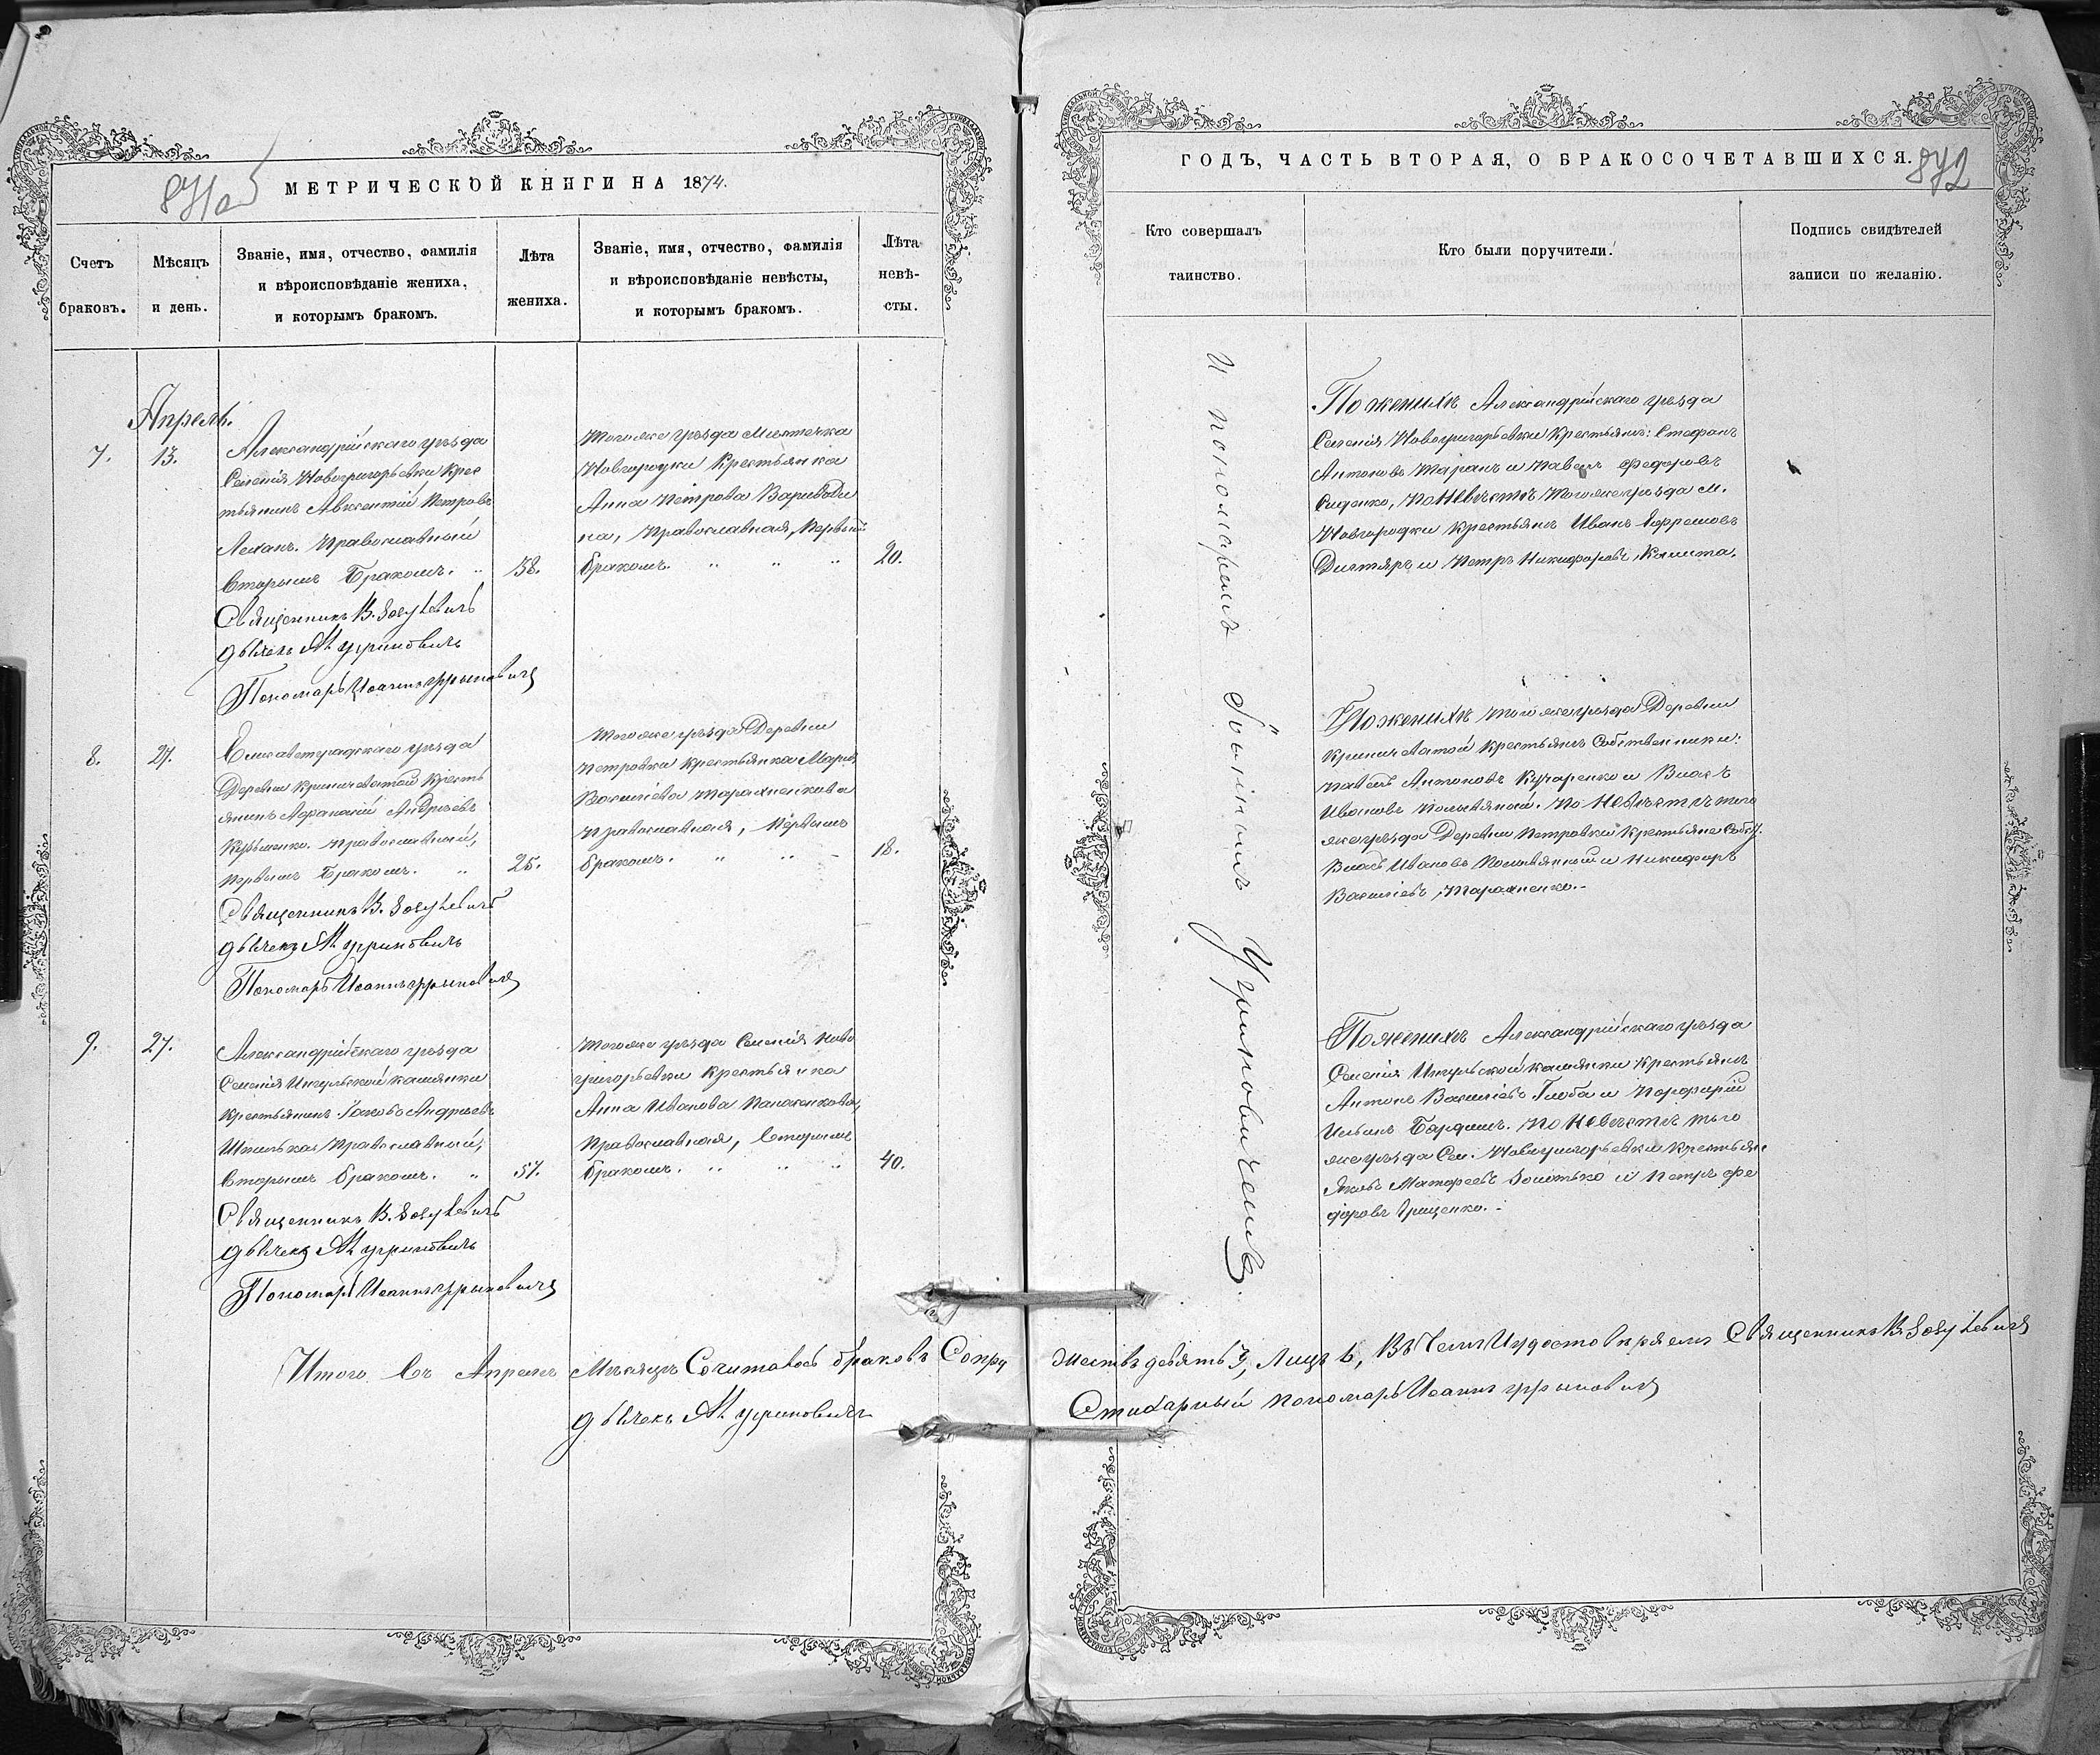 871об
МЕТРИЧЕСКОЙ КНИГИ НА 1874.
Счетъ браковъ.
Мѣсяцъ и день.
Званіе, имя, отчество, фамилія
и вѣроисповѣданіе жениха,
и которымъ бракомъ.
Лѣта жениха.
Званіе, имя, отчество, фамилія
и вѣроисповѣданіе невѣсты,
и которымъ бракомъ.
Лѣта невѣ-
сты.
Апрель.
7.
13.
Александрійскаго уѣзда
Селенія Новогригорьевки Крес
тьянинъ Авксентій Петровъ
Православный
вторымъ Бракомъ. „
58.
Священникъ В.
дьячекъ М. Угриновичъ
Пономарь Иоаннъ Угрыновичъ
Тогоже уѣзда Мѣстечка
Новгородки Крестьянка
Анна Петрова Вариводи
на, Православная, Первымъ
бракомъ. „ „ „
20.
8.
27.
Елисаветградскаго уѣзда
Деревни Криничеватой Кресть
янинъ Афанасій Андреевъ
Кузьменко. Православный,
первымъ Бракомъ. „
25.
Священникъ В.
дьячекъ М. Угриновичъ
Пономарь Иоаннъ Угрыновичъ
Тогоже уѣзда Деревни
Петровки Крестьянка Марія
Васильева Тараненкова
Православная, Первымъ
бракомъ. „ „ „
18.
9.
27.
Александрійскаго уѣзда
Селенія Ингульской Каменки
Крестьянинъ Іаковъ Андреевъ
Шпилька, Православный,
вторымъ бракомъ. „
57.
Священникъ В.
дьячекъ М. Угриновичъ
Пономарь Иоаннъ Угрыновичъ
Тогоже уѣзда Селенія Ново
григорьевки Крестьянка
Анна Иванова Панасенкова,
Православная, вторымъ
бракомъ. „ „ „
40.
Итого въ Апрелѣ Мѣсяцѣ Сочиталось браковъ Супру
дьячекъ М. Угриновичъ
872
ГОДЪ, ЧАСТЬ ВТОРАЯ, О БРАКОСОЧЕТАВШИХСЯ.
Кто совершалъ
таинство.
Кто были поручители.
Подпись свидѣтелей
записи по желанію.
и пономаремъ Иоанномъ Угриновичемъ.
По женихѣ Александрійскаго уѣзда
Селенія Новогригорьевки Крестьяне: Стефанъ
Антоновъ Таранъ и Павелъ Федоровъ
Сиденко, по Невѣстѣ тогоже уѣзда м.
Новгородки Крестьяне Иванъ Ефремовъ
Дигтяръ и Петръ Никифоровъ
По женихѣ тогоже уѣзда Деревни
Криничеватой Крестьяне Собственники:
Павелъ Антоновъ Кучаренко и Власъ
Ивановъ Полывяный. по Невѣстѣ того
же уѣзда Деревни Петровки Крестьяне Собст.
Власъ Ивановъ Полывяный и Никифоръ
Васильевъ Тараненко.-
По женихѣ Александрійскаго уѣзда
Селенія Ингульской Каменки Крестьяне
Антонъ Васильевъ Глоба и Порфирій
Ильинъ по Невѣстѣ того
же уѣзда Сел. Новогригорьевки Крестьяне
Яковъ Матфеевъ Золотько и Петръ Фе
доровъ Грищенко.-
жествъ девять 9, Лицъ Въ Чемъ И удостовѣряемъ Священникъ В.
Стихарный пономарь Иоаннъ Угрыновичъ